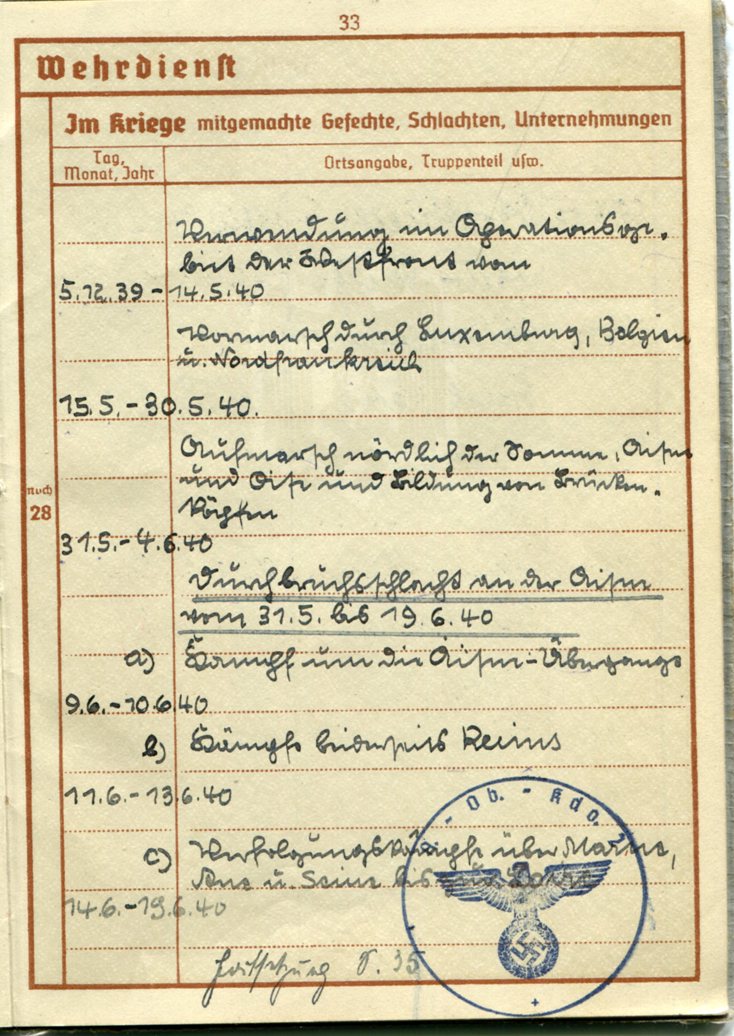 33
Wehrdienst
Im Kriege mitgemachte Gefechte, Schlachten, Unternehmungen
Tag, Monat, Jahr
Ortsangabe, Truppenteil usw.
Verwendung im Operationsge-
biet der Westfront vom
5.12.39 - 14.5.40
Vormarsch durch Luxemburg, Belgien
u. Nordfrankreich
15.5. - 30.5.40.
Aufmarsch nördlich der Somme, Aisne
und Oise und Bildung von Brücken-
köpfen
noch
28
31.5. - 4.6.40
Durchbruchsschlacht an der Aisne
vom 31.5. bis 19.6.40
a) Kampf um die Aisne-Übergänge
9.6. - 10.6.40
b) Kämpfe beiderseits Reims
11.6. - 13.6.40
c) Verfolgungskämpfe über Marne,
u. Seine bis zur Loire
14.6. - 19.6.40
Fortsetzung S. 35
- Ob. - Kdo.